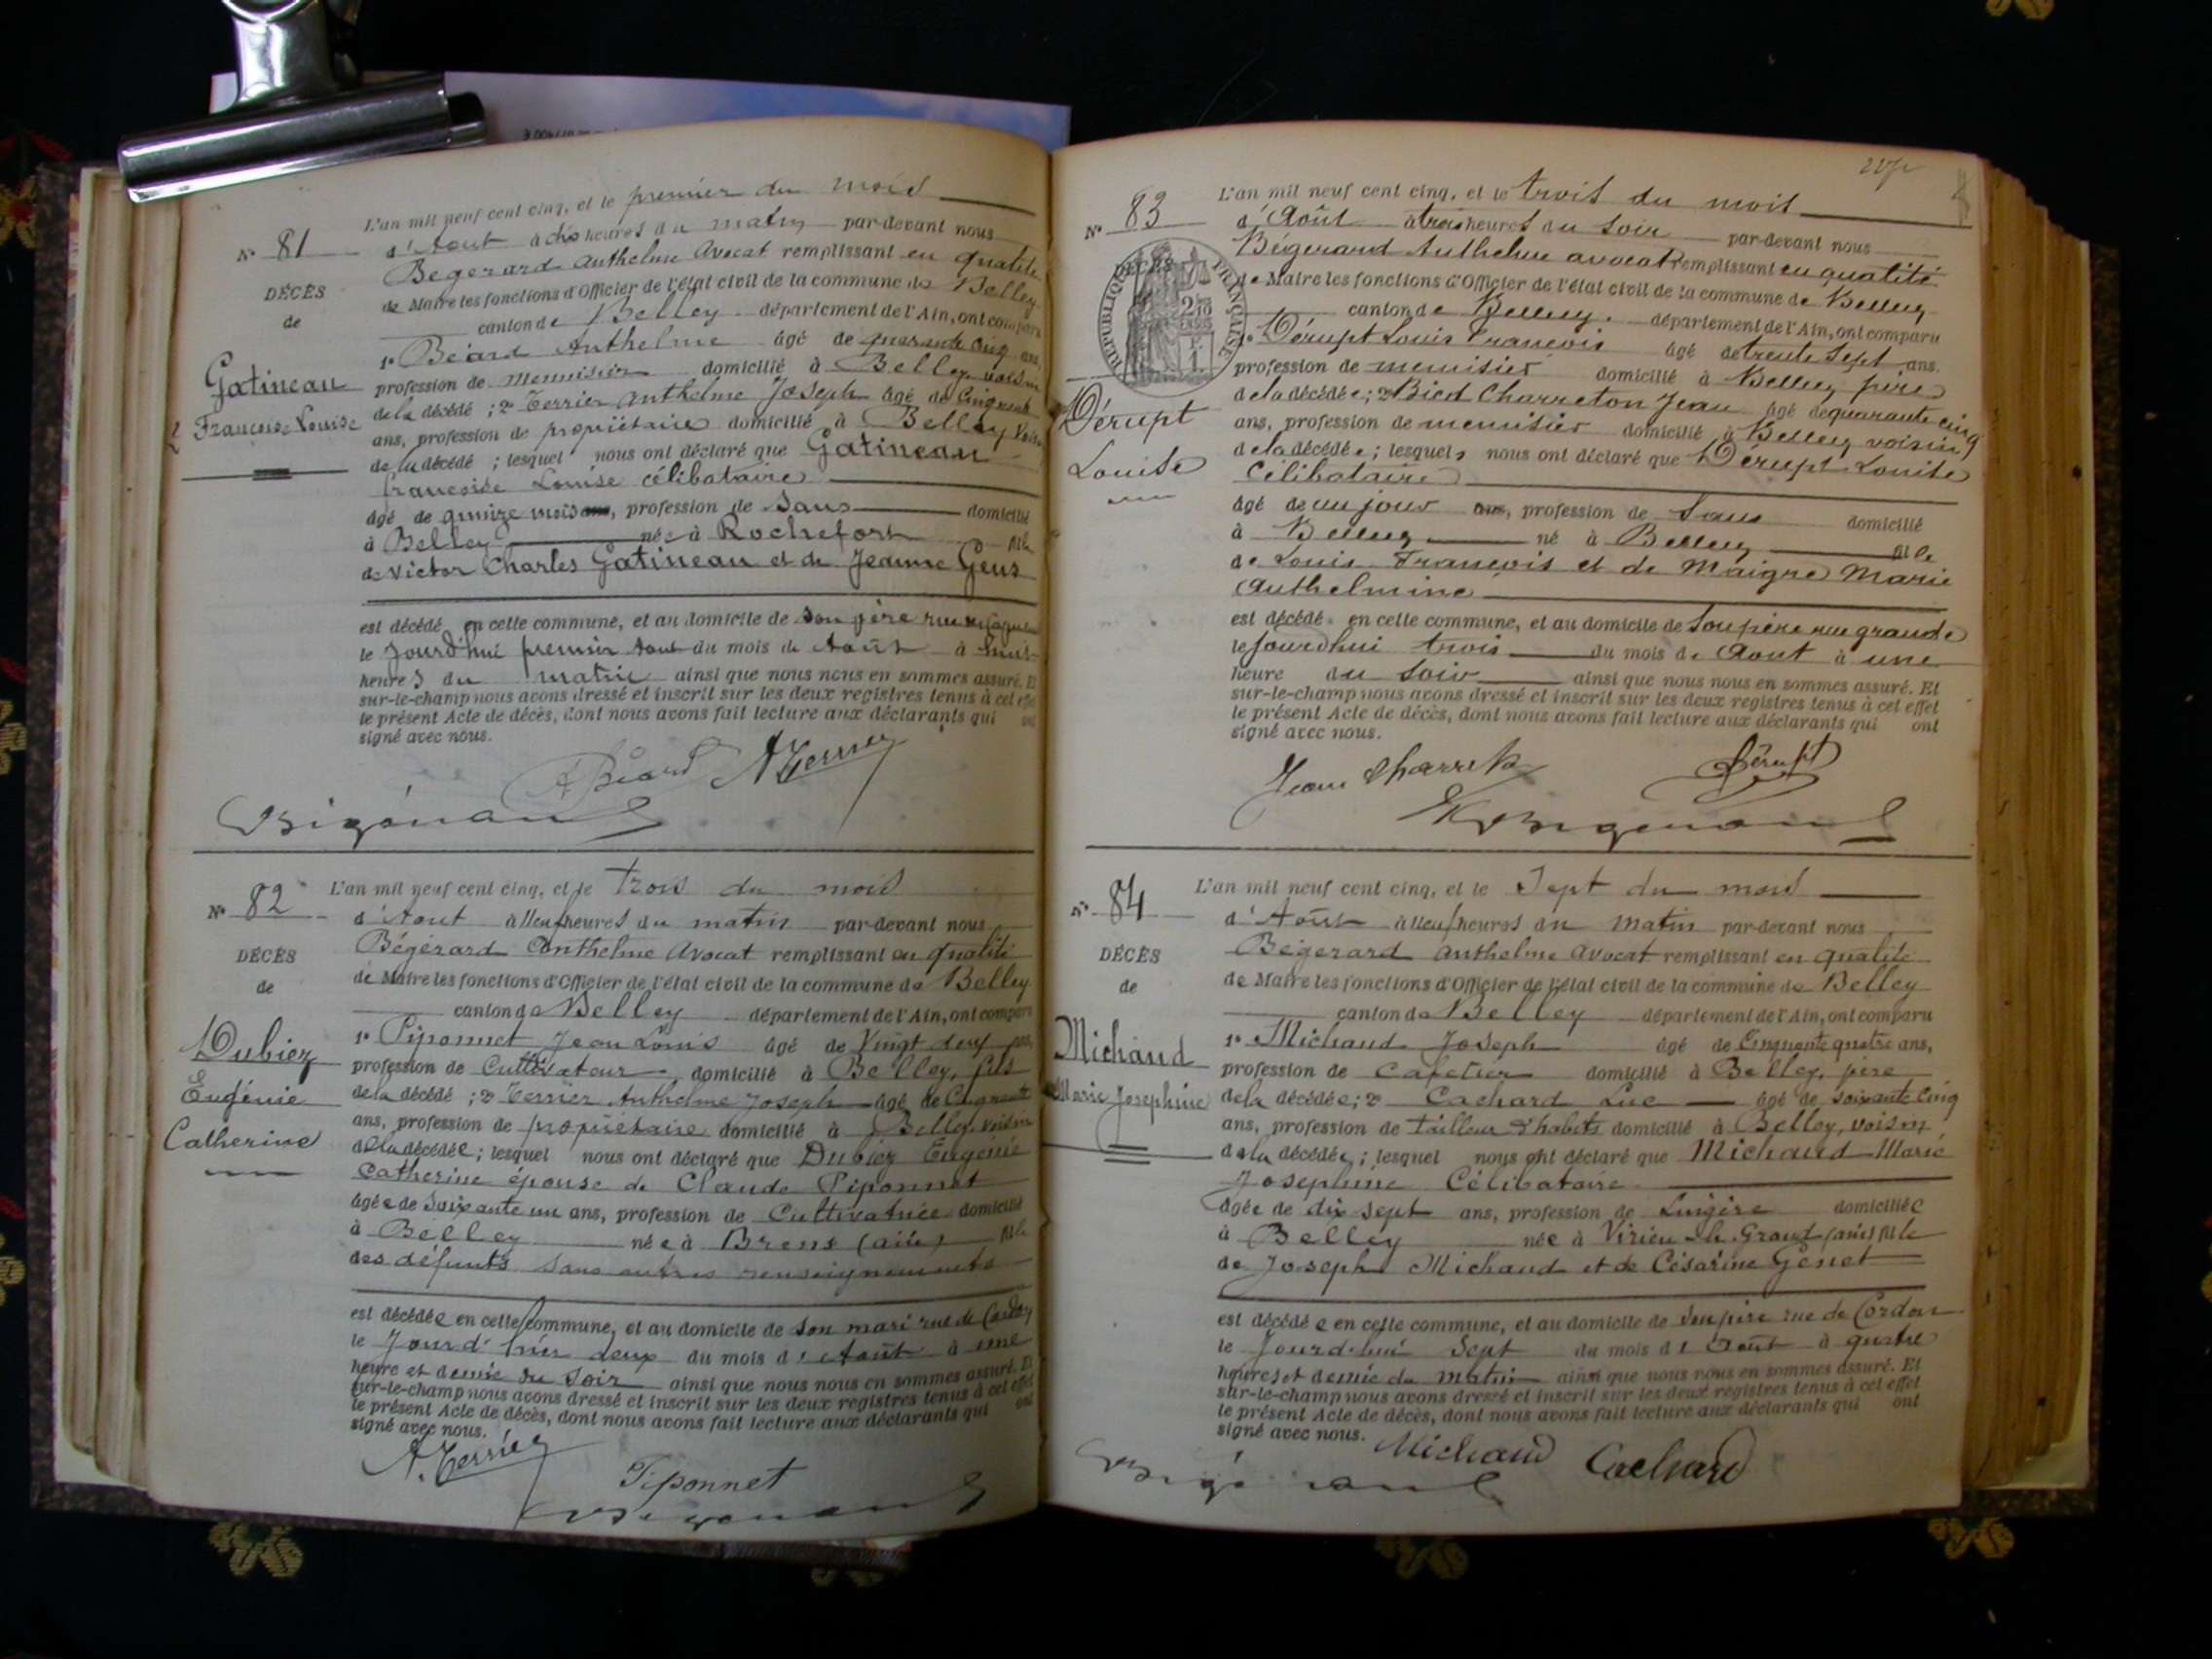 L'an mil neuf cent cinq, et le premier du mois
N° 81
d'Aout à dix heures du matin par-devant nous
Bégerard Anthelme Avocat remplissant en qualité
DÉCÈS
de Maire les fonctions d'Officier de l'état civil de la commune de Belley
de
canton de Belley département de l'Ain, ont comparu
1° Béard Anthelme âgé de quarante cinq ans,
Gatineau
profession de menuisier domicilié à Belley voisin
Francoise Louise
de la décédé ; 2° Terrier Anthelme Joseph âgé de Cinquante
ans, profession de propriétaire domicilié à Belley voisin
de la décédé ; lesquel nous ont déclaré que Gatineau
francoise Louise célibataire
âgé de quinze mois ans, profession de Sans domicilié
à Belley née à Rochefort fille
de Victor Charles Gatineau et de Jeanne Geus
est décédé en cette commune, et au domicile de son père rue
le Jourd'hui premier du mois de Août à huit
heures du matin ainsi que nous nous en sommes assuré. Et
sur-le-champ nous avons dressé et inscrit sur les deux registres tenus à cet effet
le présent Acte de décès, dont nous avons fait lecture aux déclarants qui ont
signé avec nous.
A. Béard A Terrier
Bégérard
L'an mil neuf cent cinq, et le Trois du mois
N° 82
d'Aout à neuf heures du matin par-devant nous
Bégérard Anthelme Avocat remplissant en qualité
DÉCÈS
de Maire les fonctions d'Officier de l'état civil de la commune de Belley
de
canton de Belley département de l'Ain, ont comparu
1° Piponnet Jean Louis âgé de Vingt deux ans,
Dubiez
profession de Cultivateur domicilié à Belley, fils
Eugénie
de la décédé ; 2° Terrier Anthelme Joseph âgé de Cinquante
ans, profession de propriétaire domicilié à Belley, voisin
Catherine
de la décédée ; lesquel nous ont déclaré que Dubiez Eugénie
Catherine épouse de Claude Piponnet
âgée de Soixante un ans, profession de Cultivatrice domicilié
à Belley née à Brens (ain) fille
des défunts sans autres renseignements
est décédée en cette commune, et au domicile de son mari rue de Cordon
le Jourd'hier deux du mois d'Août à une
heure et demie du Soir ainsi que nous nous en sommes assuré. Et
sur-le-champ nous avons dressé et inscrit sur les deux registres tenus à cet effet
le présent Acte de décès, dont nous avons fait lecture aux déclarants qui ont
signé avec nous.
A. Terrier
Piponnet
Bégérard
L'an mil neuf cent cinq, et le trois du mois
N° 83
d'Août à trois heures du soir par-devant nous
Bégerard Anthelme avocat remplissant en qualité
RÉPUBLIQUE FRANÇAISE
de Maire les fonctions d'Officier de l'état civil de la commune de Belley
canton de Belley. département de l'Ain, ont comparu
1° Dérupt Louis Francois âgé de trente Sept ans.
profession de menuisier domicilié à Belley père
Dérupt
de la décédée ; 2° Bied Charreton Jean âgé de quarante cinq
ans, profession de menuisier domicilié à Belley voisin
Louise
de la décédée ; lesquels nous ont déclaré que Dérupt Louise
Célibataire
âgé de un jour ans, profession de Sans domicilié
à Belley né à Belley fille
de Louis Francois et de Maigre Marie
Anthelmine
est décédé en cette commune, et au domicile de son père rue grande
le jourdhui trois du mois de Aout à une
heure du soir ainsi que nous nous en sommes assuré. Et
sur-le-champ nous avons dressé et inscrit sur les deux registres tenus à cet effet
le présent Acte de décès, dont nous avons fait lecture aux déclarants qui ont
signé avec nous.
Jean Charreton Dérupt
Bégérard
L'an mil neuf cent cinq, et le Sept du mois
N° 84
d'Août à neuf heures du matin par-devant nous
Bégerard Anthelme Avocat remplissant en qualité
DÉCÈS
de Maire les fonctions d'Officier de l'état civil de la commune de Belley
de
canton de Belley département de l'Ain, ont comparu
1° Michaud Joseph âgé de Cinquante quatre ans,
Michaud
profession de Cafetier domicilié à Belley, père
Marie Josephine
de la décédée ; 2° Cachard Luc âgé de soixante cinq
ans, profession de tailleur d'habits domicilié à Belley, voisin
de la décédée ; lesquel nous ont déclaré que Michaud Marie
Josephine Célibataire
âgée de dix sept ans, profession de Lingère domiciliée
à Belley née à Virieu-le-Grand (ain) fille
de Joseph Michaud et de Césarine Genet
est décédée en cette commune, et au domicile de son père rue de Cordon
le Jourd'hui Sept du mois d'Août à quatre
heures et demie du matin ainsi que nous nous en sommes assuré. Et
sur-le-champ nous avons dressé et inscrit sur les deux registres tenus à cet effet
le présent Acte de décès, dont nous avons fait lecture aux déclarants qui ont
signé avec nous.
Michaud Cachard
Bégérard